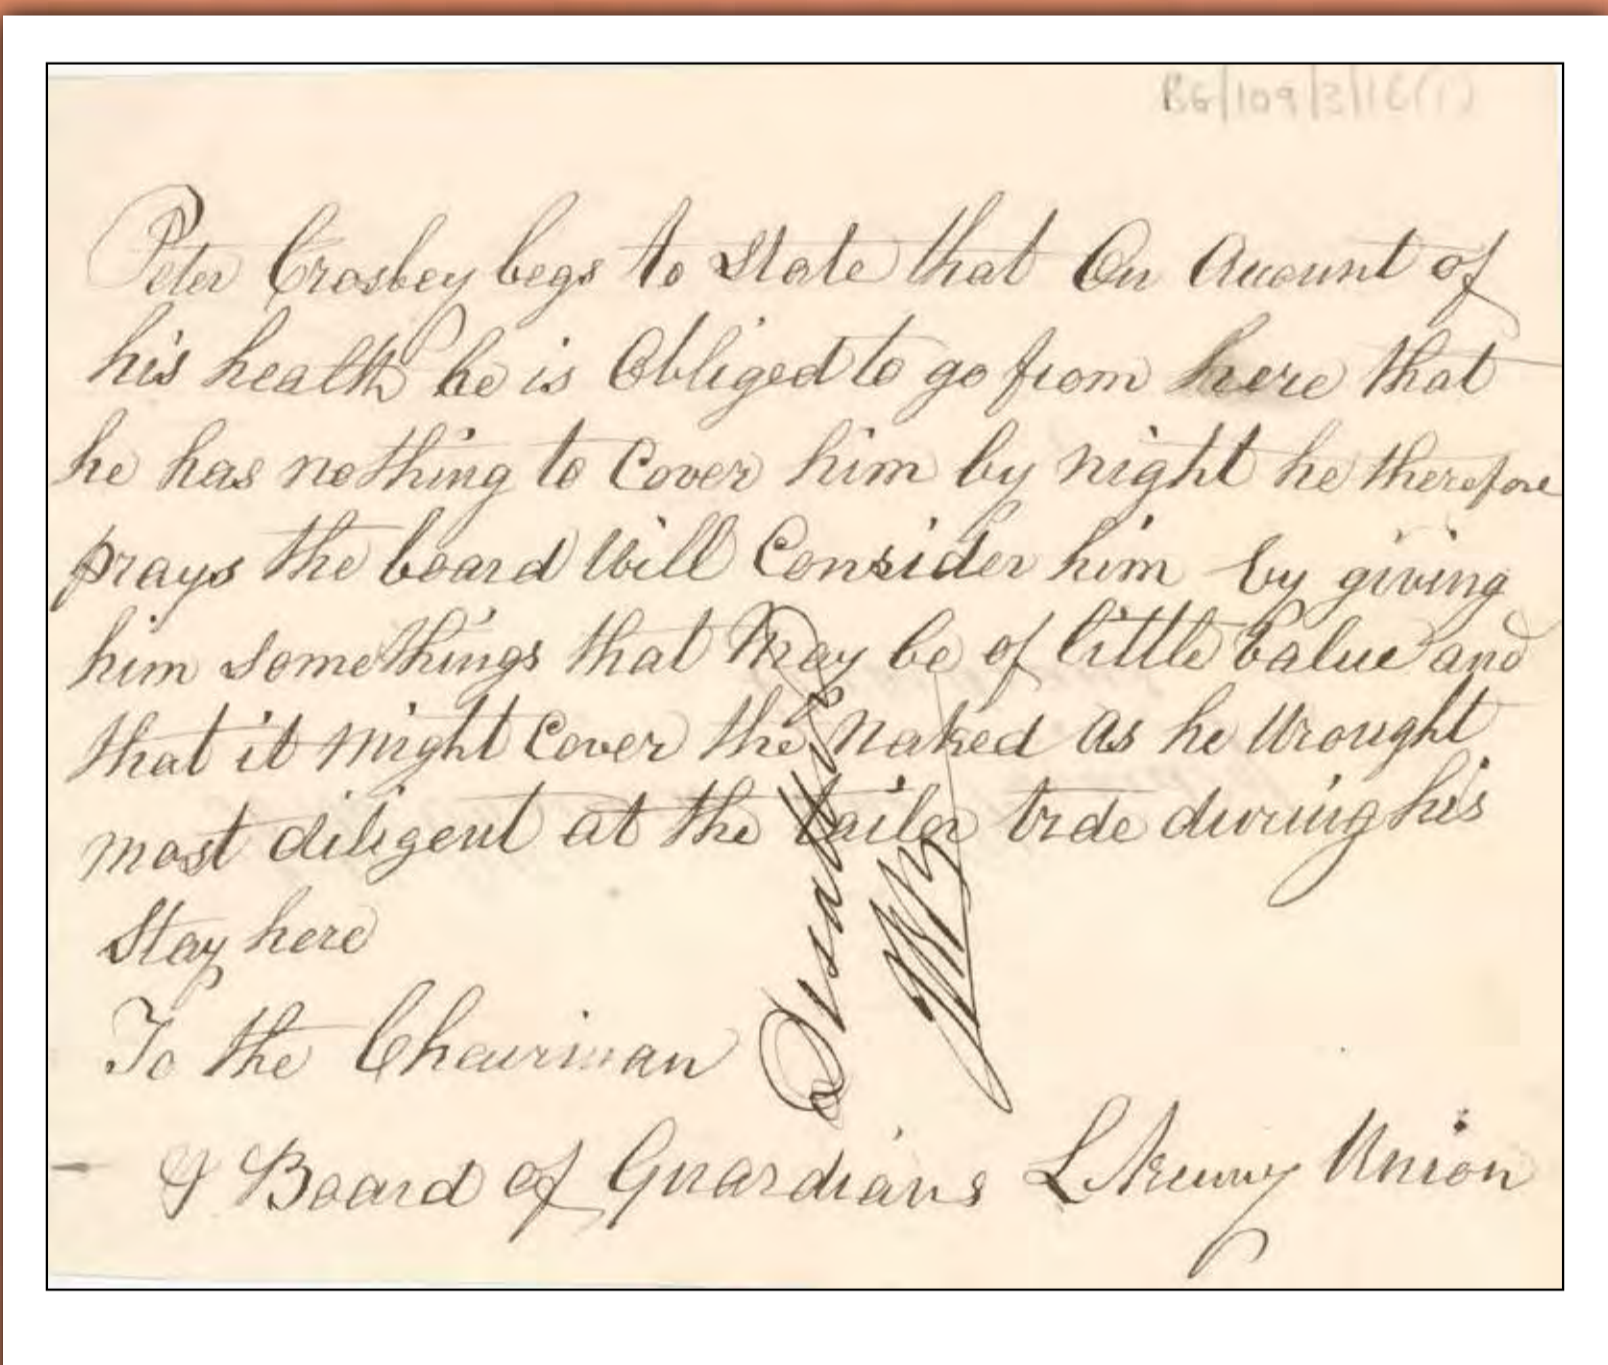 BG/109/3/16(1)
Peter Crosbey begs to State that On Account of
his health he is Obliged to go from here that
he has nothing to Cover him by night he therefore
prays the board Will Consider him by giving
him some things that May be of little Value and
that it might Cover the Naked as he Wrought
most diligent at the tailor trde during his
Stay here
To the Chairman
& Board of Guardians LKenny Union